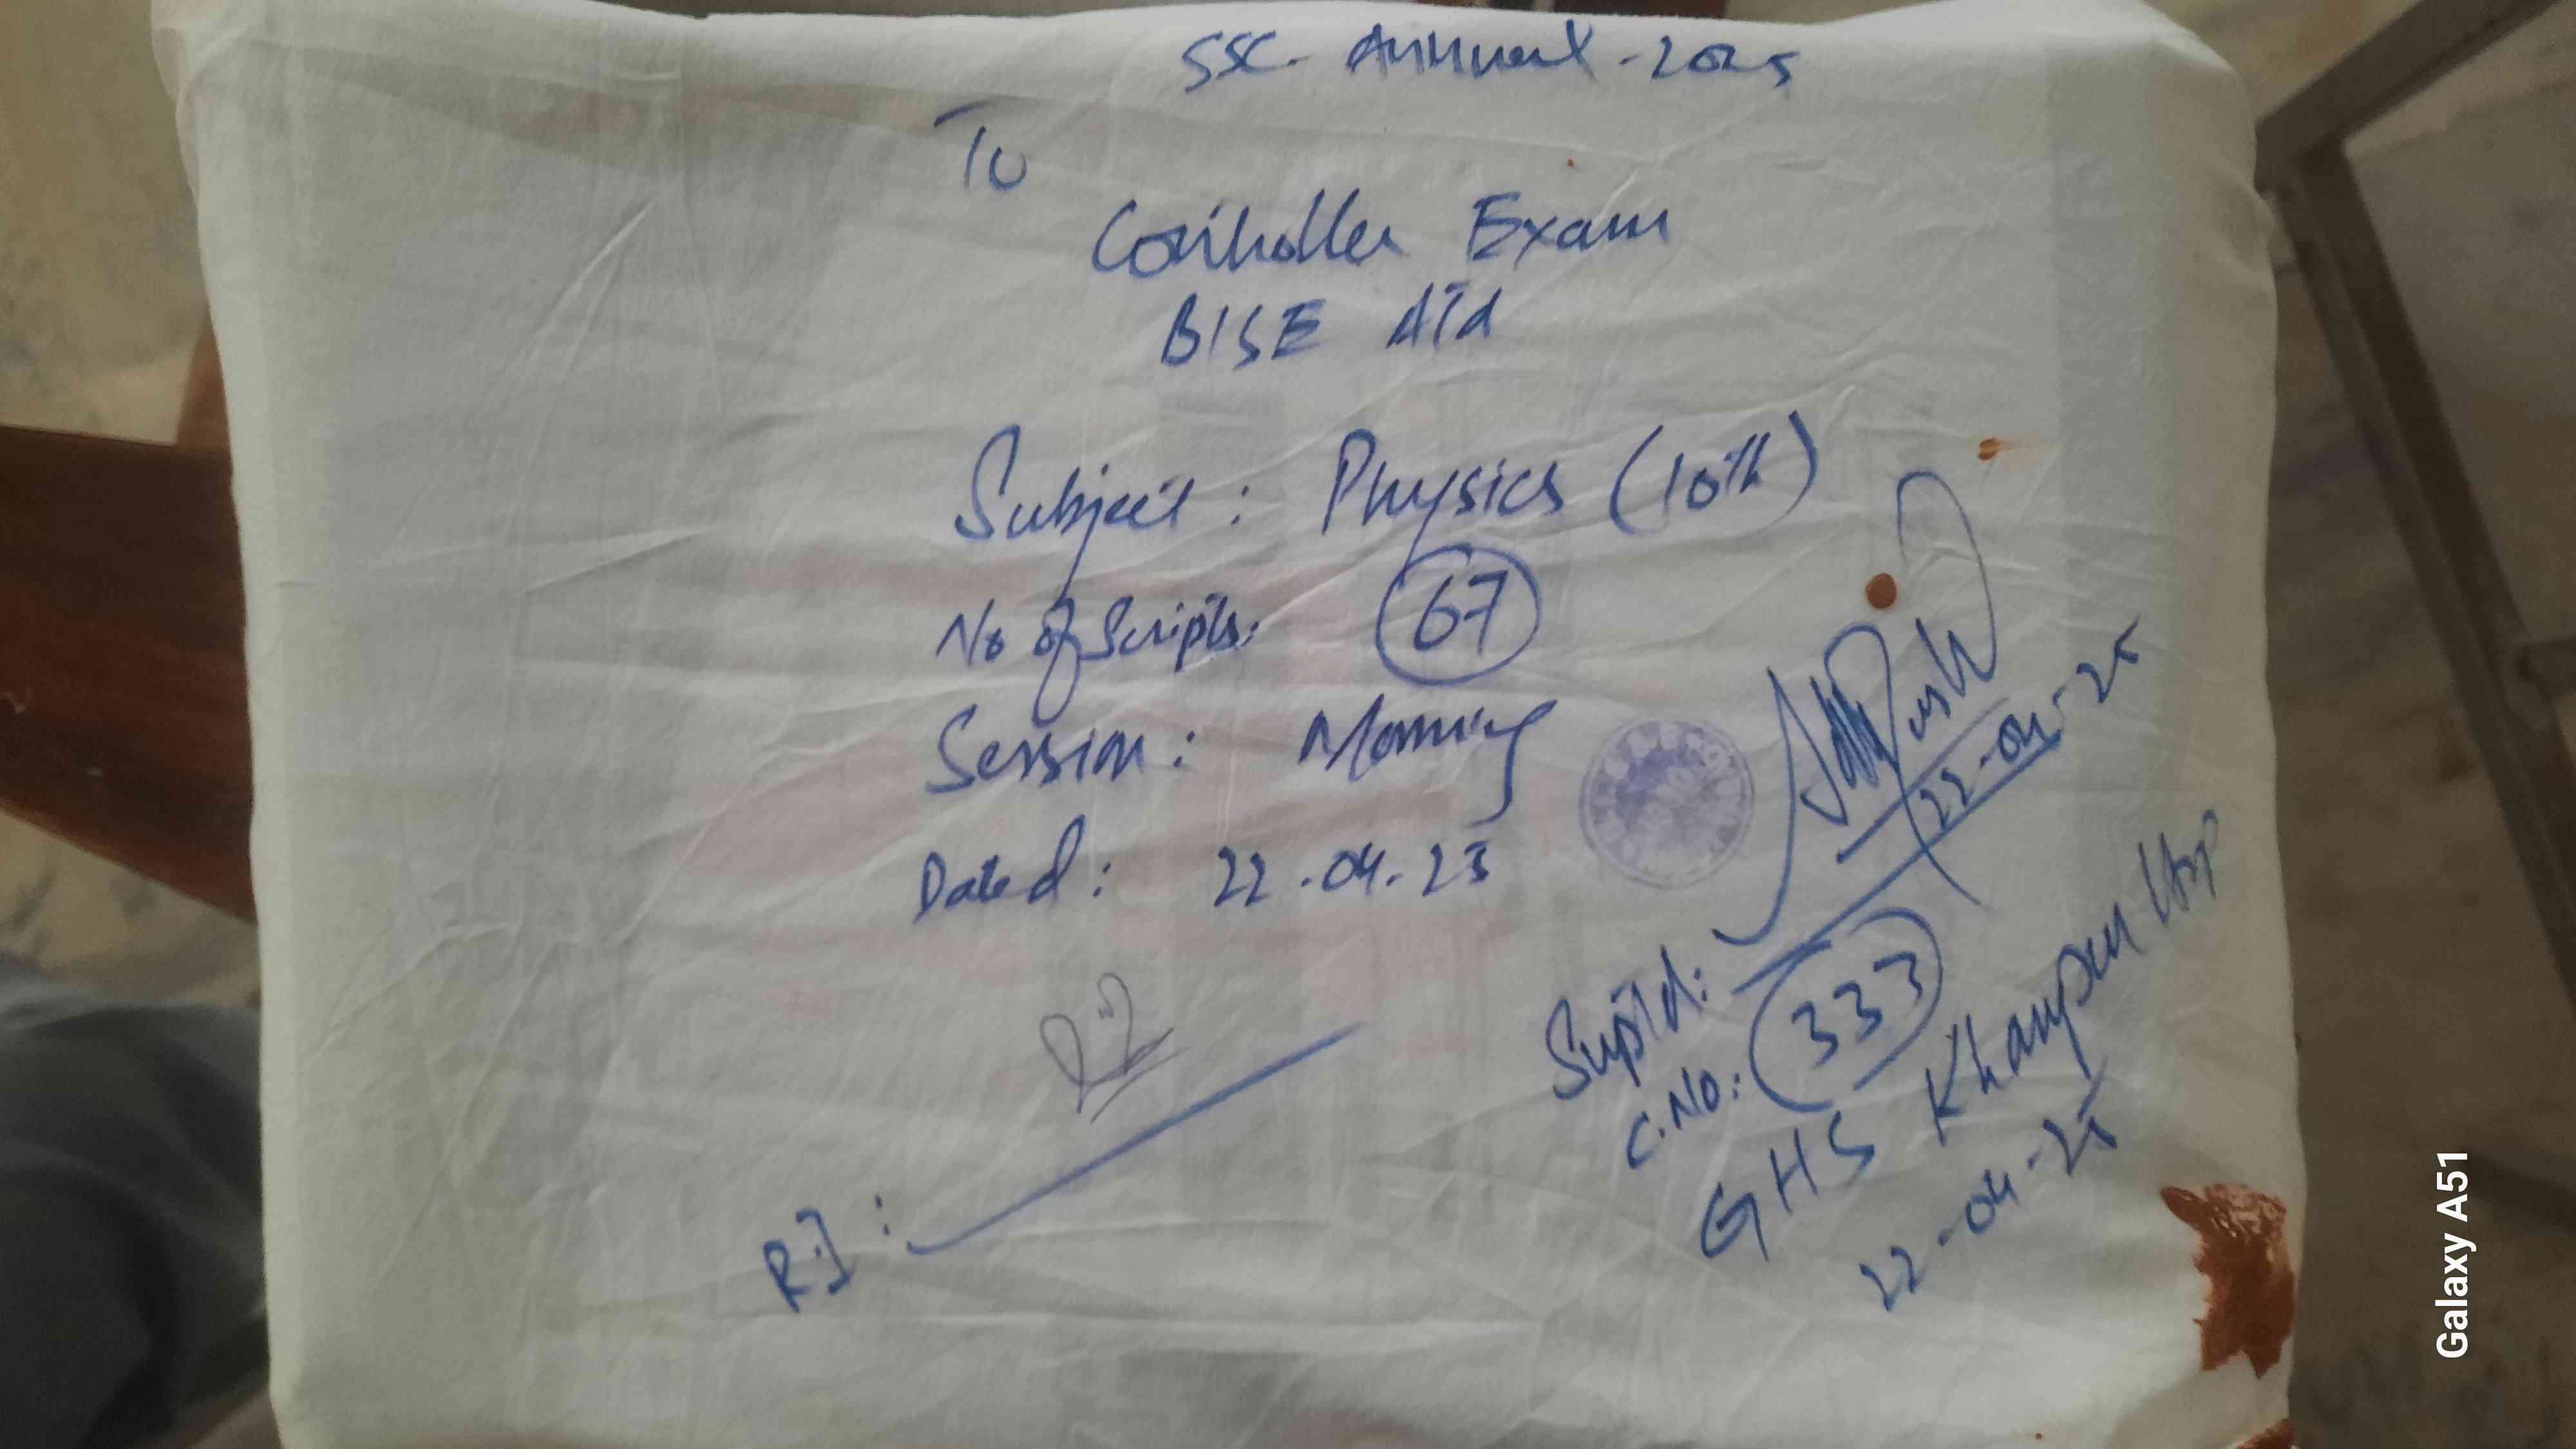 SSC Annual - 2025
To
Controller Exam
BISE ATd
Subject : Physics (10th)
No of Scripts: 67
Session : Morning
Dated : 22.04.25
22-04-25
Suptd:
C.No.: 333
GHS Khanpur
22-04-25
R.I :
Galaxy A51